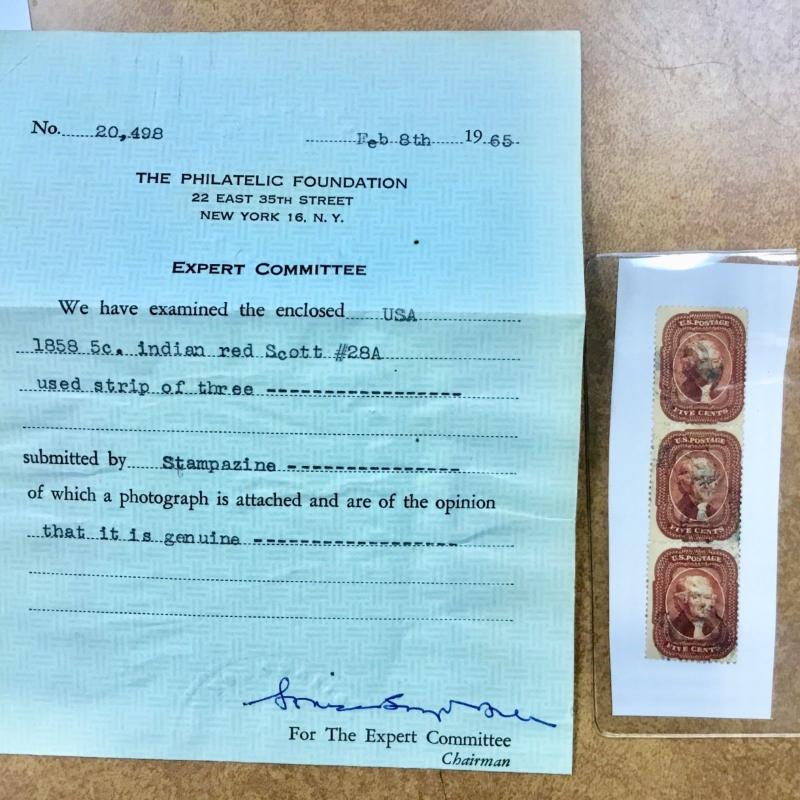 No. 20,498 Feb 8th 19 65
THE PHILATELIC FOUNDATION
22 EAST 35TH STREET
NEW YORK 16, N. Y.
EXPERT COMMITTEE
We have examined the enclosed USA
1858 5c. indian red Scott #28A
used strip of three
submitted by Stampazine
of which a photograph is attached and are of the opinion
that it is genuine
For The Expert Committee
Chairman
U.S. POSTAGE
FIVE CENTS
U.S. POSTAGE
FIVE CENTS
U.S. POSTAGE
FIVE CENTS